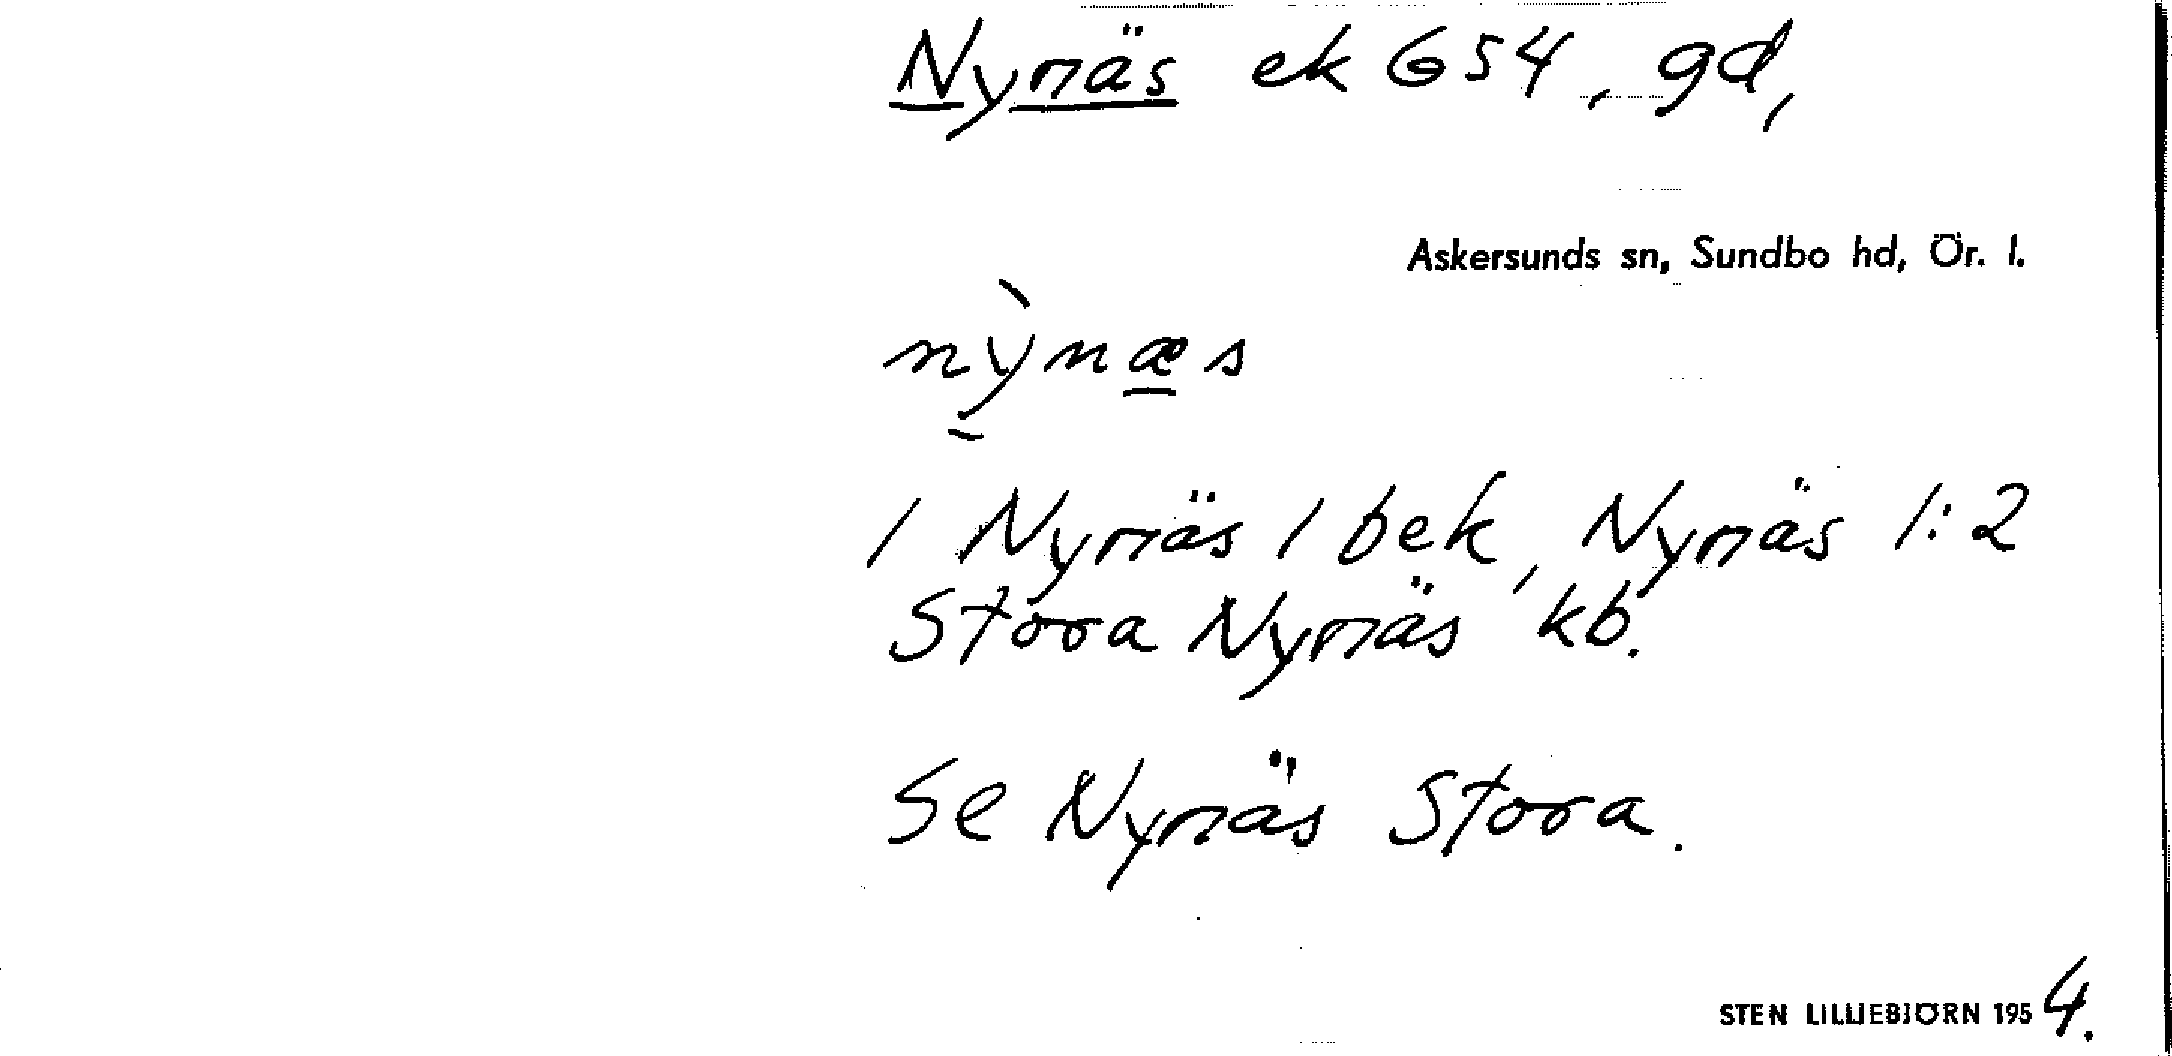 Nynäs ek G 54, gd,
Askersunds sn, Sundbo hd, Ör. l.
nỳnæs
1 Nynäs 1 bek, Nynäs 1:2
Stora Nynäs kb.
Se Nynäs Stora.
STEN LILLIEBJÖRN 1954.